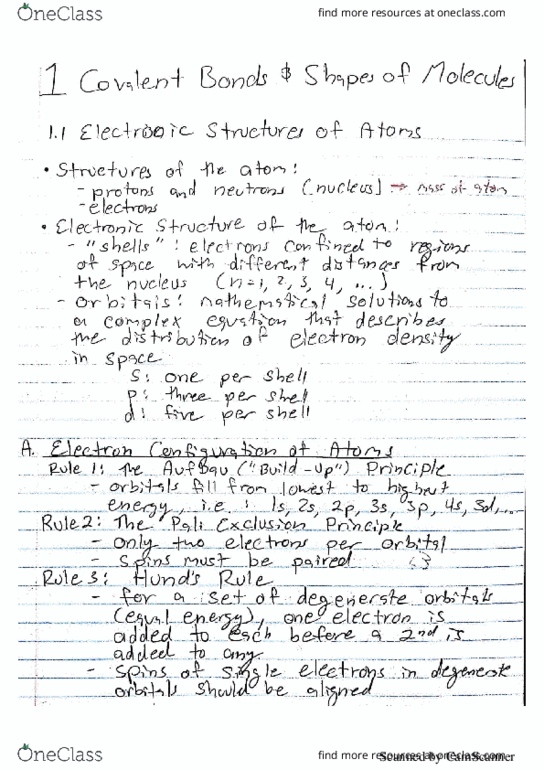 OneClass
find more resources at oneclass.com
1 Covalent Bonds & Shapes of Molecules
1.1 Electronic Structures of Atoms
• Structures of the atom:
- protons and neutrons (nucleus) → mass of atom
- electrons
• Electronic Structure of the atom:
- "shells": electrons confined to regions
of space with different distances from
the nucleus (n=1, 2, 3, 4, ...)
- orbitals: mathematical solutions to
a complex equation that describes
the distribution of electron density
in space
s: one per shell
p: three per shell
d: five per shell
A. Electron Configuration of Atoms
Rule 1: The Aufbau ("Build-Up") Principle
- orbitals fill from lowest to highest
energy, i.e: 1s, 2s, 2p, 3s, 3p, 4s, 3d,...
Rule 2: The Pali Exclusion Principle
- only two electrons per orbital
- spins must be paired
Rule 3: Hund's Rule
- for a set of degenerate orbitals
(equal energy), one electron is
added to each before a 2nd is
added to any
- spins of single electrons in degenerate
orbitals should be aligned
OneClass
find more resources at oneclass.com
Scanned by CamScanner